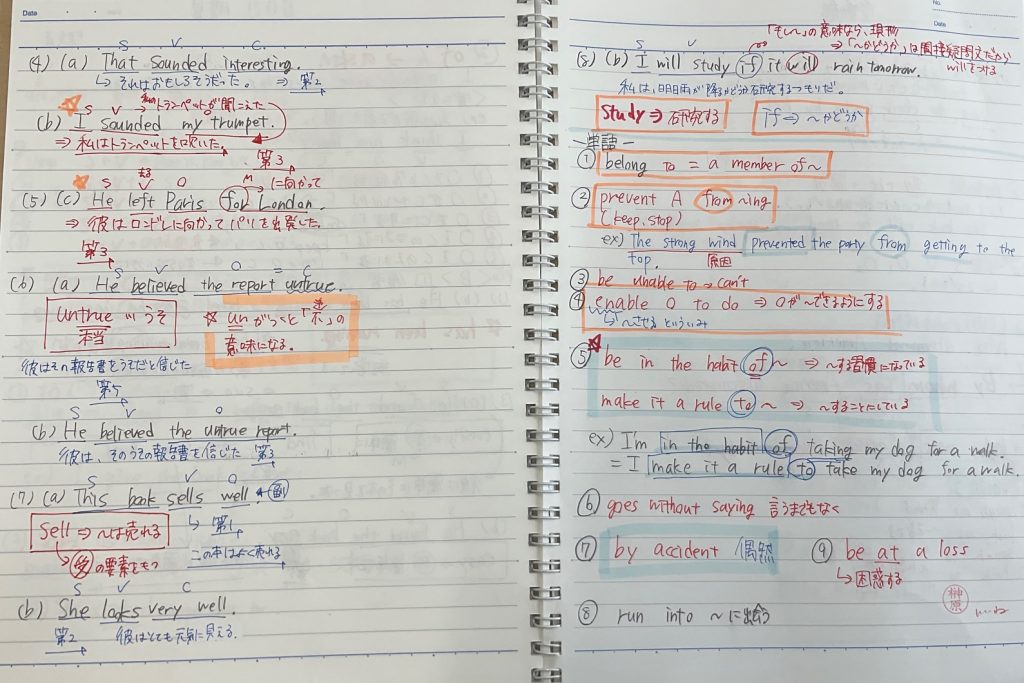 Date
S V C
(4) (a) That sounded interesting.
↳ それはおもしろそうだった。 ⇒ 第2
S V → 私のトランペットが聞こえた
(b) I sounded my trumpet.
⇒ 私はトランペットを吹いた。
第3
S V 去る O M に向かって
(5) (c) He left Paris for London.
⇒ 彼はロンドンに向かってパリを出発した。
第3
S V O = C
(6) (a) He believed the report untrue.
untrue … うそ
本当
☆ unがつくと「不」の
意味になる。
彼はその報告書をうそだと信じた
第5
S V O
(b) He believed the untrue report.
彼は、そのうその報告書を信じた 第3
S V O
(7) (a) This book sells well. ← 副
sell ⇒ 〜は売れる
↳ 第1
この本はよく売れる
→ 受の要素をもつ
S V C
(b) She looks very well.
第2 彼はとても元気に見える.
No.
Date
「もし〜」の意味なら、現形
⇒「〜かどうか」は間接疑問文だから
willをつける
S V
(8) (b) I will study if it will rain tomorrow.
私は、明日雨が降るかどうか研究するつもりだ。
study ⇒ 研究する
if ⇒ 〜かどうか
ー単語ー
① belong to = a member of 〜
② prevent A from 〜ing
(keep, stop)
ex) The strong wind prevented the party from getting to the
top. 原因
③ be unable to → can't
④ enable O to do ⇒ Oが〜できるようにする
↳ 〜させるといういみ
⑤ be in the habit of 〜 ⇒ 〜する習慣になっている
make it a rule to 〜 ⇒ 〜することにしている
ex) I'm in the habit of taking my dog for a walk.
= I make it a rule to take my dog for a walk.
⑥ goes without saying 言うまでもなく
⑦ by accident 偶然
⑨ be at a loss
↳ 困惑する
⑧ run into 〜に出会う
榊原